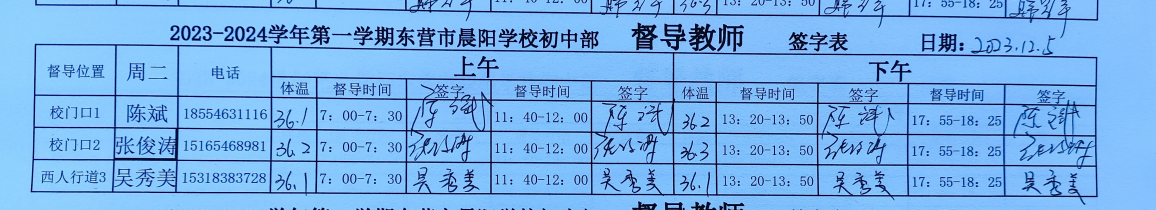 11: 40-12: 00 36.3 13: 20-13: 50 17: 55-18: 25
2023-2024学年第一学期东营市晨阳学校初中部 督导教师 签字表 日期: 2023.12.5
督导位置 周二 电话 上午 下午
体温 督导时间 签字 督导时间 签字 体温 督导时间 签字 督导时间 签字
校门口1 陈斌 18554631116 36.1 7: 00-7: 30 陈斌 11: 40-12: 00 陈斌 36.2 13: 20-13: 50 陈斌 17: 55-18: 25 陈斌
校门口2 张俊涛 15165468981 36.2 7: 00-7: 30 张俊涛 11: 40-12: 00 张俊涛 36.3 13: 20-13: 50 张俊涛 17: 55-18: 25 张俊涛
西人行道3 吴秀美 15318383728 36.1 7: 00-7: 30 吴秀美 11: 40-12: 00 吴秀美 36.1 13: 20-13: 50 吴秀美 17: 55-18: 25 吴秀美